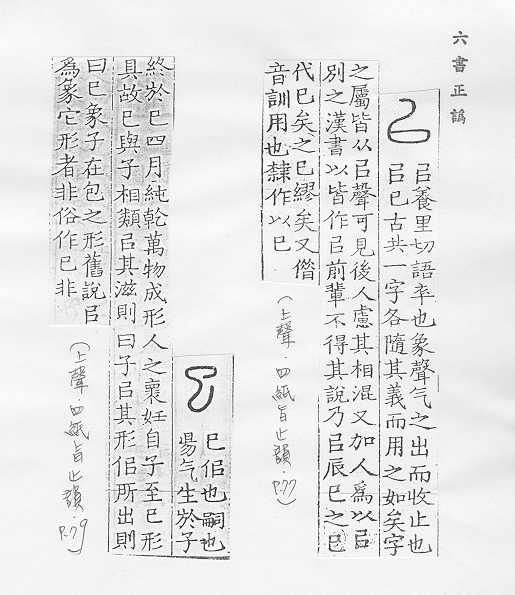 六書正譌
㠯養里切語卒也象聲气之出而收止也
㠯巳古共一字各隨其義而用之如矣字
之屬皆从㠯聲可見後人慮其相混又加人爲以㠯
別之漢書以皆作㠯前輩不得其說乃㠯辰巳之巳
代巳矣之巳繆矣又僭
音訓用也隸作以巳
(上聲.四紙旨止韻. P.77)
巳佀也嗣也
昜气生於子
終於巳四月純乾萬物成形人之褱妊自子至巳形
具故巳與子相類㠯其滋則曰子㠯其形佀所出則
曰巳象子在包之形舊說㠯
為象它形者非俗作巳非
(上聲.四紙旨止韻 P.79)